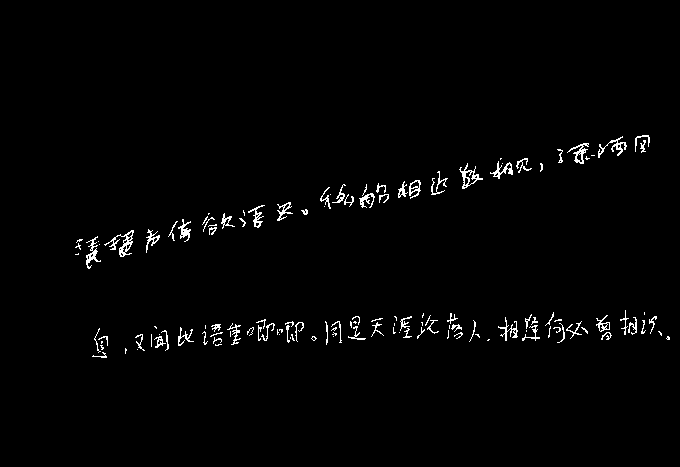 琵琶声停欲语迟。移船相近邀相见,添酒回
息,又闻此语重唧唧。同是天涯沦落人,相逢何必曾相识。